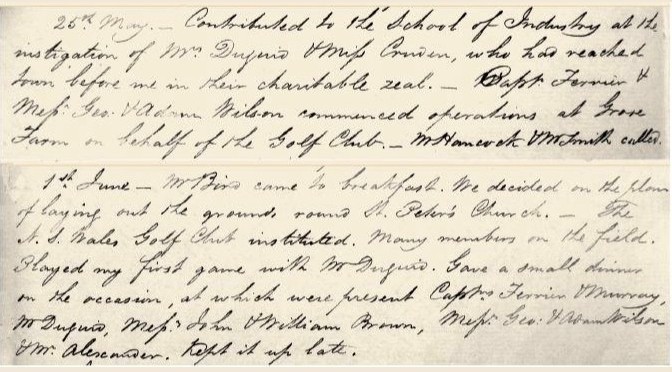 25th May. — Contributed to the School of Industry at the
instigation of Mrs Duguid & Miss Cruden, who had reached
town before me in their charitable zeal. — Capt. Ferrier &
Messrs Geo. & Adam Wilson commenced operations at Grove
Farm on behalf of the Golf Club. — Mr Hancock & Mr Smith called.
1st June — Mr Bird came to breakfast. We decided on the plan
of laying out the grounds round St. Peter's Church. — The
N. S. Wales Golf Club instituted. Many members on the field.
Played my first game with Mr Duguid. Gave a small dinner
on the occasion, at which were present Capt.ns Ferrier & Murray,
Mr Duguid, Messrs John & William Brown, Messrs Geo: & Adam Wilson
& Mr. Alexander. Kept it up late.